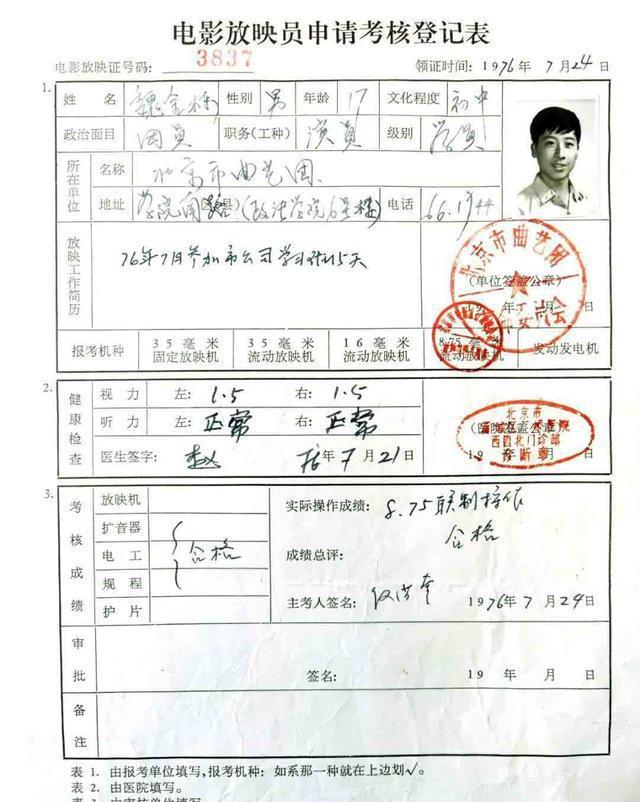 电影放映员申请考核登记表
电影放映证号码: 3837 领证时间: 1976年7月24日
1. 姓名 魏金栋 性别 男 年龄 17 文化程度 初中
政治面目 团员 职务(工种) 演员 级别 学员
所在单位 名称 北京市曲艺团
地址 学院南路(区县)(政法学院6号楼) 电话 66.1944
放映工作简历 76年7月参加市公司学习班15天
北京市曲艺团
(单位签盖公章)
19 年 月 日
报考机种 35毫米固定放映机 35毫米流动放映机 16毫米流动放映机 8.75毫米流动放映机 发动发电机
2. 健康检查 视力 左: 1.5 右: 1.5
听力 左: 正常 右: 正常
医生签字: 赵 76年7月21日
北京市
(医院签盖公章)
西四北门诊部
诊断章
19 年 月 日
3. 考核成绩 放映机
扩音器
电工
规程
护片
合格
实际操作成绩: 8.75
合格
成绩总评:
主考人签名: 1976年7月24日
审批 签名: 19 年 月 日
备注
表 1. 由报考单位填写,报考机种: 如系那一种就在上边划√。
表 2. 由医院填写。